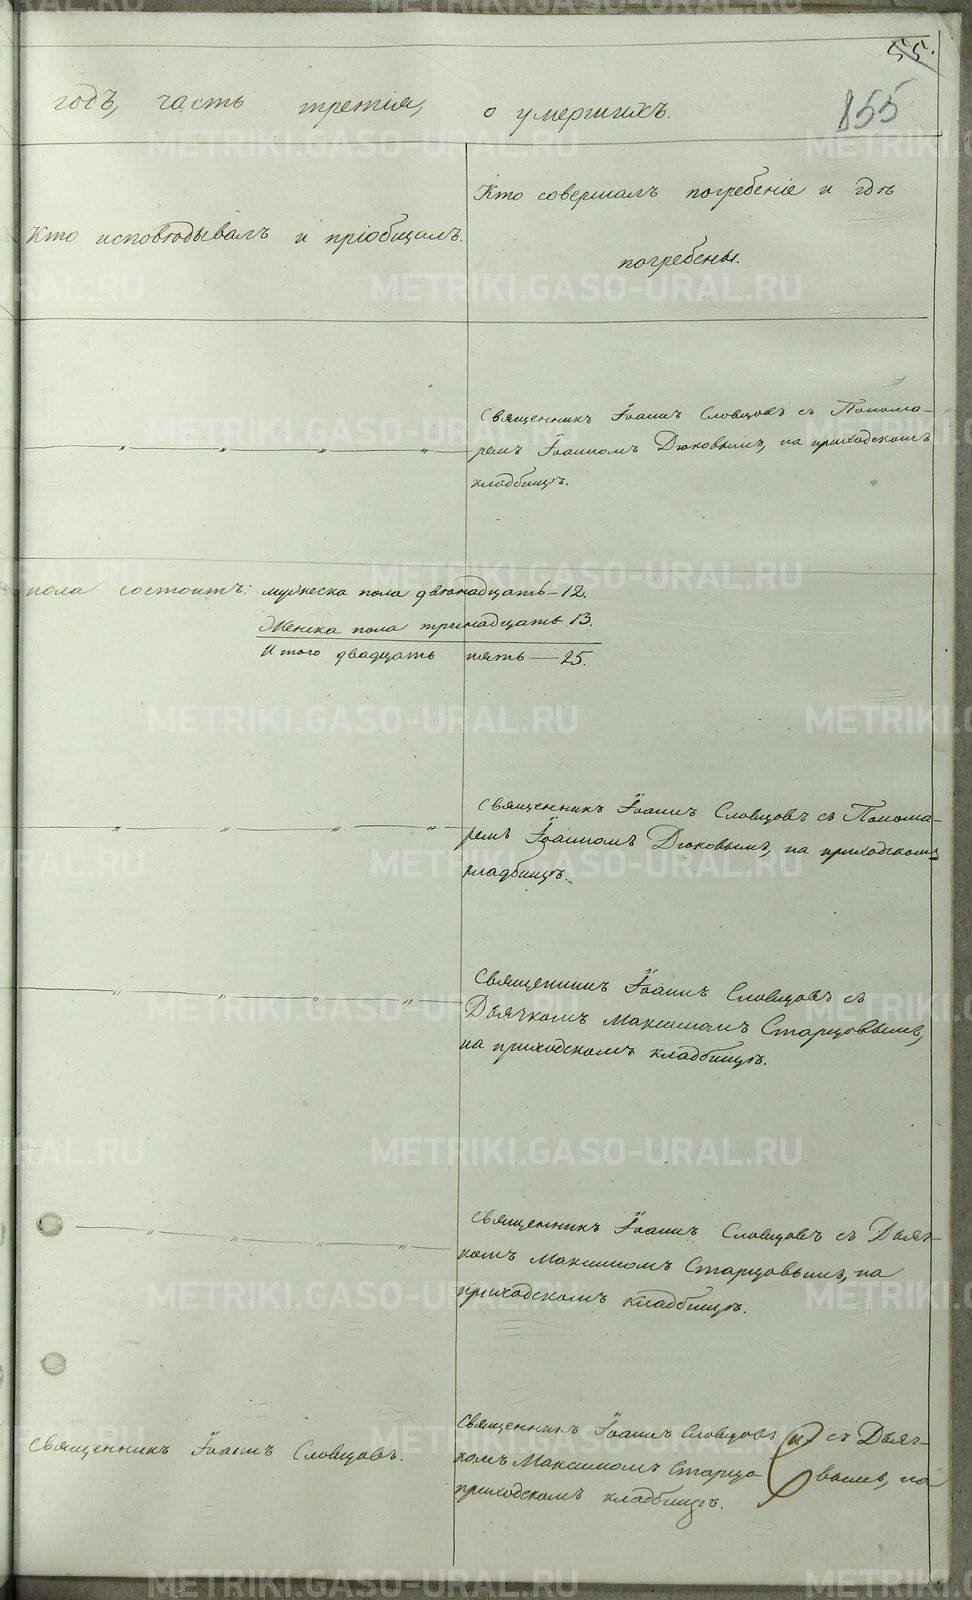 55.
855
годъ, часть третія, о умершихъ.
Кто исповѣдывалъ и пріобщалъ.
Кто совершалъ погребеніе и гдѣ
погребены.
Священникъ Іоаннъ Словцовъ съ Понома-
ремъ Іоанномъ Дюковымъ, на приходскомъ
кладбищѣ.
пола состоитъ: мужеска пола двѣнадцать - 12.
Женска пола тринадцать 13.
Итого двадцать пять - 25.
Священникъ Іоаннъ Словцовъ съ Понома-
ремъ Іоанномъ Дюковымъ, на приходскомъ
кладбищѣ.
Священникъ Іоаннъ Словцовъ съ
Дьячкомъ Максимомъ Старцовымъ,
на приходскомъ кладбищѣ.
Священникъ Іоаннъ Словцовъ съ Дьяч-
комъ Максимомъ Старцовымъ, на
приходскомъ кладбищѣ.
Священникъ Іоаннъ Словцовъ.
Священникъ Іоаннъ Словцовъ (и) съ Дьяч-
комъ Максимомъ Старцовымъ, на
приходскомъ кладбищѣ.
METRIKI.GASO-URAL.RU